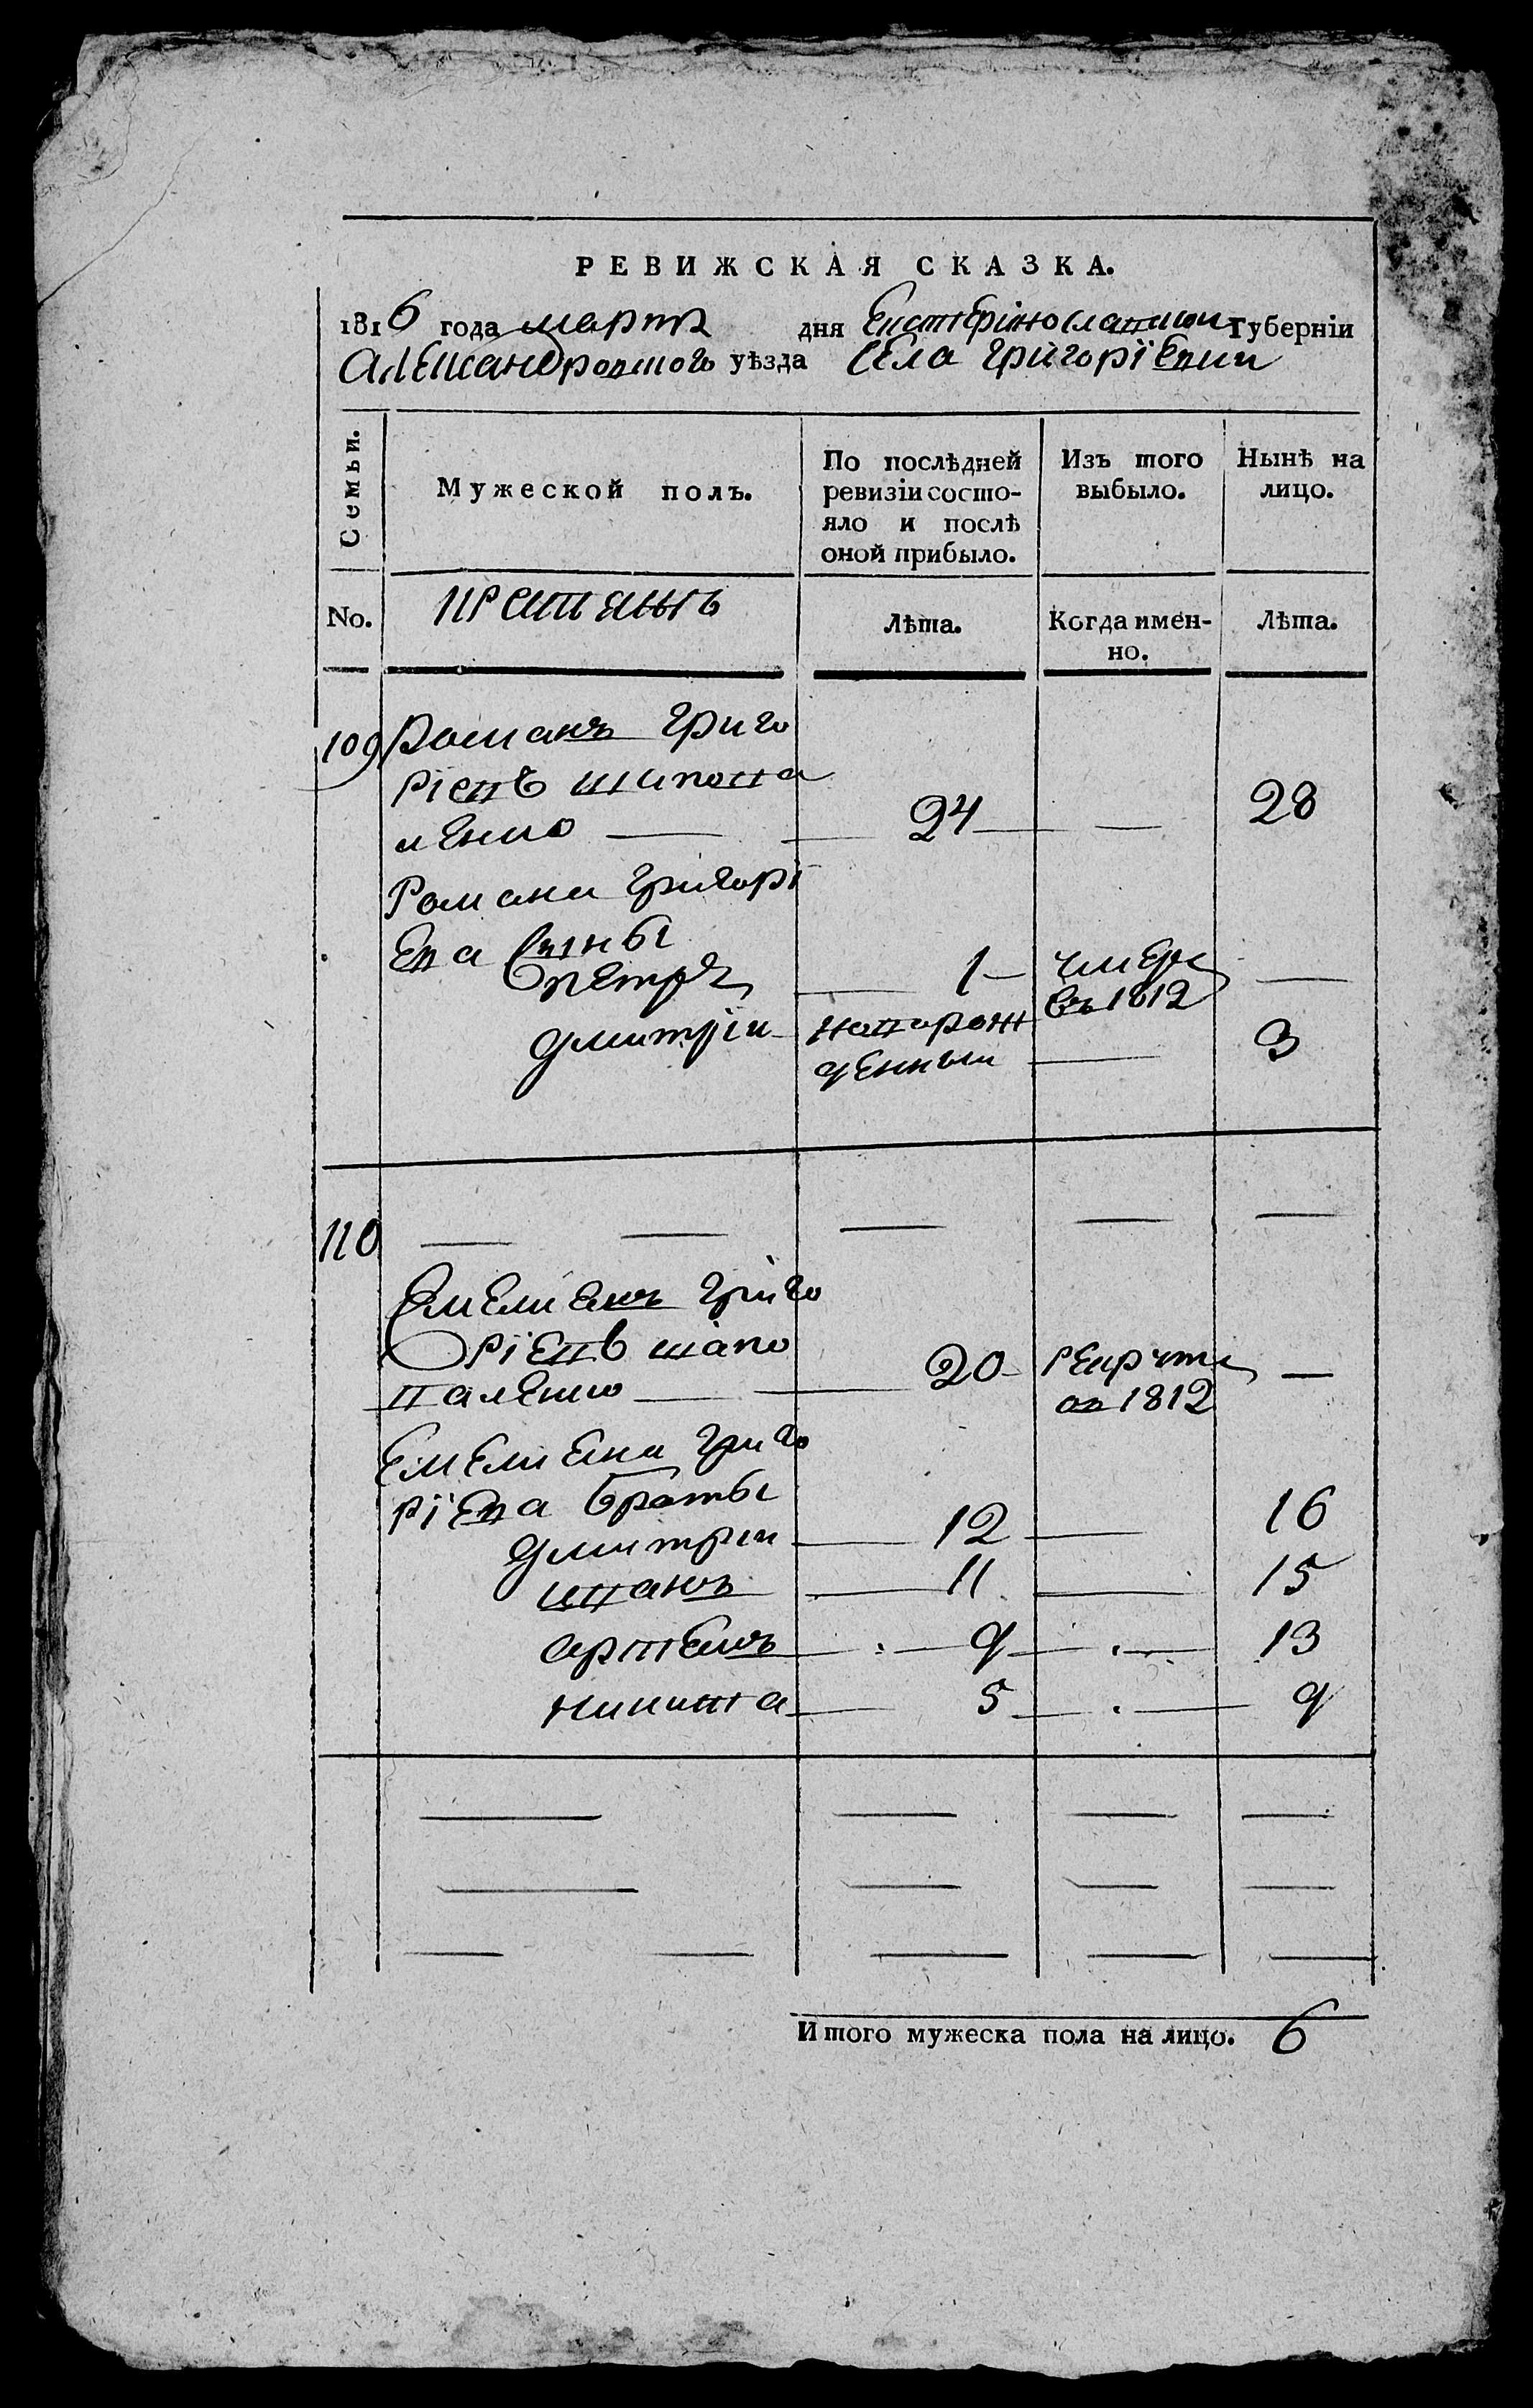 РЕВИЖСКАЯ СКАЗКА.
1816 года марта дня Екатеринославской Губерніи
Александровскогъ уѣзда Села Григоріевки
Семьи.
Мужеской полъ.
По послѣдней ревизіи состояло и послѣ оной прибыло.
Изъ того выбыло.
Нынѣ на лицо.
No.
Лѣта.
Когда именно.
Лѣта.
109 Романъ Григо
ріевъ шапова
ленко — 24 — — 28
Романа Григорі
ева сыны
Петръ — 1 — умеръ —
въ 1812
Дмитрій новорож
денный — 3
110 — — — — —
Емелианъ Григо
ріевъ шапо
валенко — 20 — рекрутъ —
въ 1812
Емелиана Григо
ріева браты
Дмитрій — 12 — 16
иванъ — 11 — 15
артемъ — 9 — 13
никита — 5 — 9
Итого мужеска пола на лицо. 6